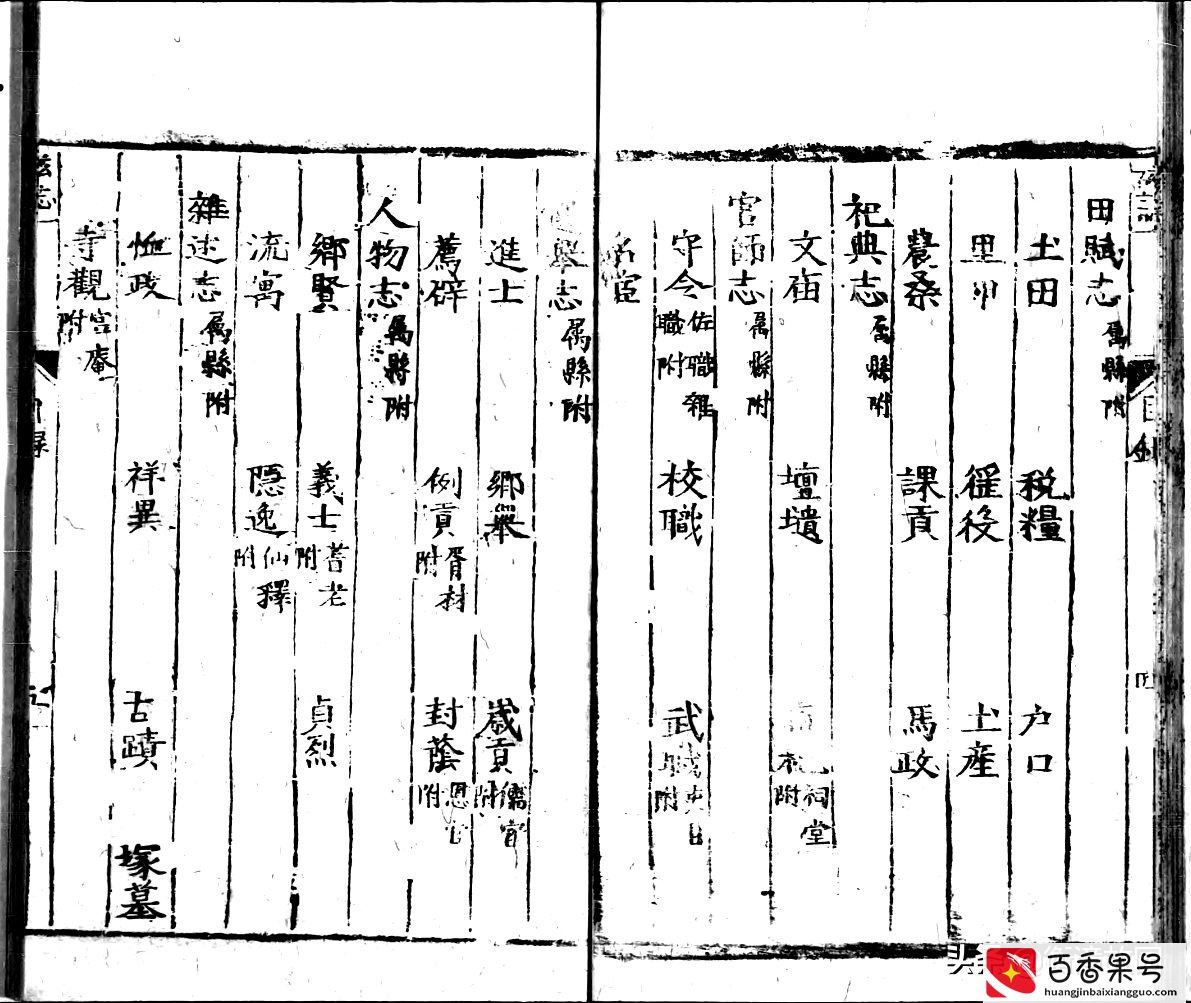 田賦志 屬縣附
土田 税糧 户口
里甲 徭役 土産
農桑 課貢 馬政
祀典志 屬縣附
文庙 壇壝 祠堂附
官師志 屬縣附
守令 佐職雜職附 校職 武職附
名宦
舉志 屬縣附
進士 鄉舉 歲貢 儒官附
薦辟 例貢 胥材附 封蔭 恩官附
人物志 屬縣附
鄉賢 義士 耆老附 貞烈
流寓 隱逸 仙釋附
雜述志 屬縣附
恤政 祥異 古蹟 塚墓
寺觀 宫庵附
目録
百香果号
huangjinbaixiangguo.com